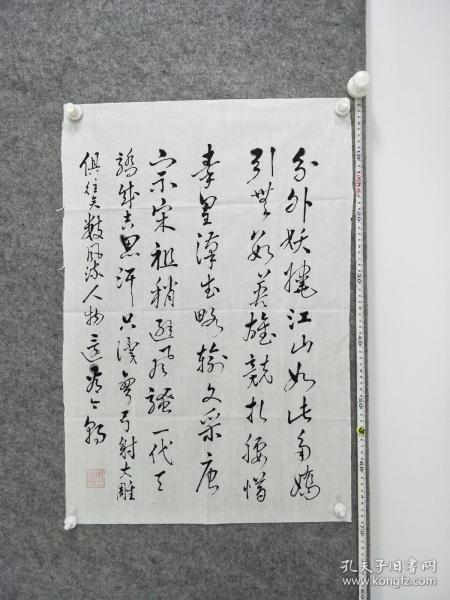 分外妖娆江山如此多娇
引无数英雄竞折腰惜
秦皇汉武略输文采唐
宗宋祖稍逊风骚一代天
骄成吉思汗只识弯弓射大雕
俱往矣数风流人物还看今朝
孔夫子旧书网
www.kongfz.com